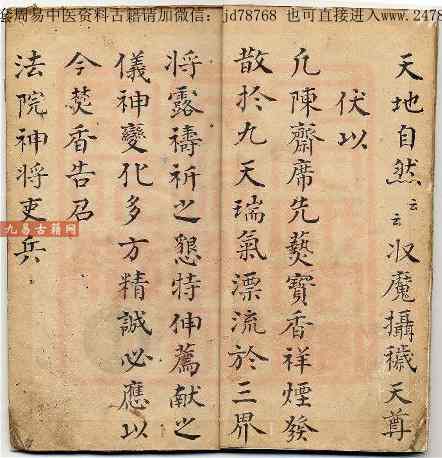 套周易中医资料古籍请加微信：jd78768 也可直接进入www.2478
天地自然云云收魔攝穢天尊
伏以
凡陳齋席先爇寶香祥煙發
散於九天瑞氣漂流於三界
将露禱祈之懇特伸薦献之
儀神變化多方精誠必應以
今焚香告召
法院神将吏兵
九易古籍网